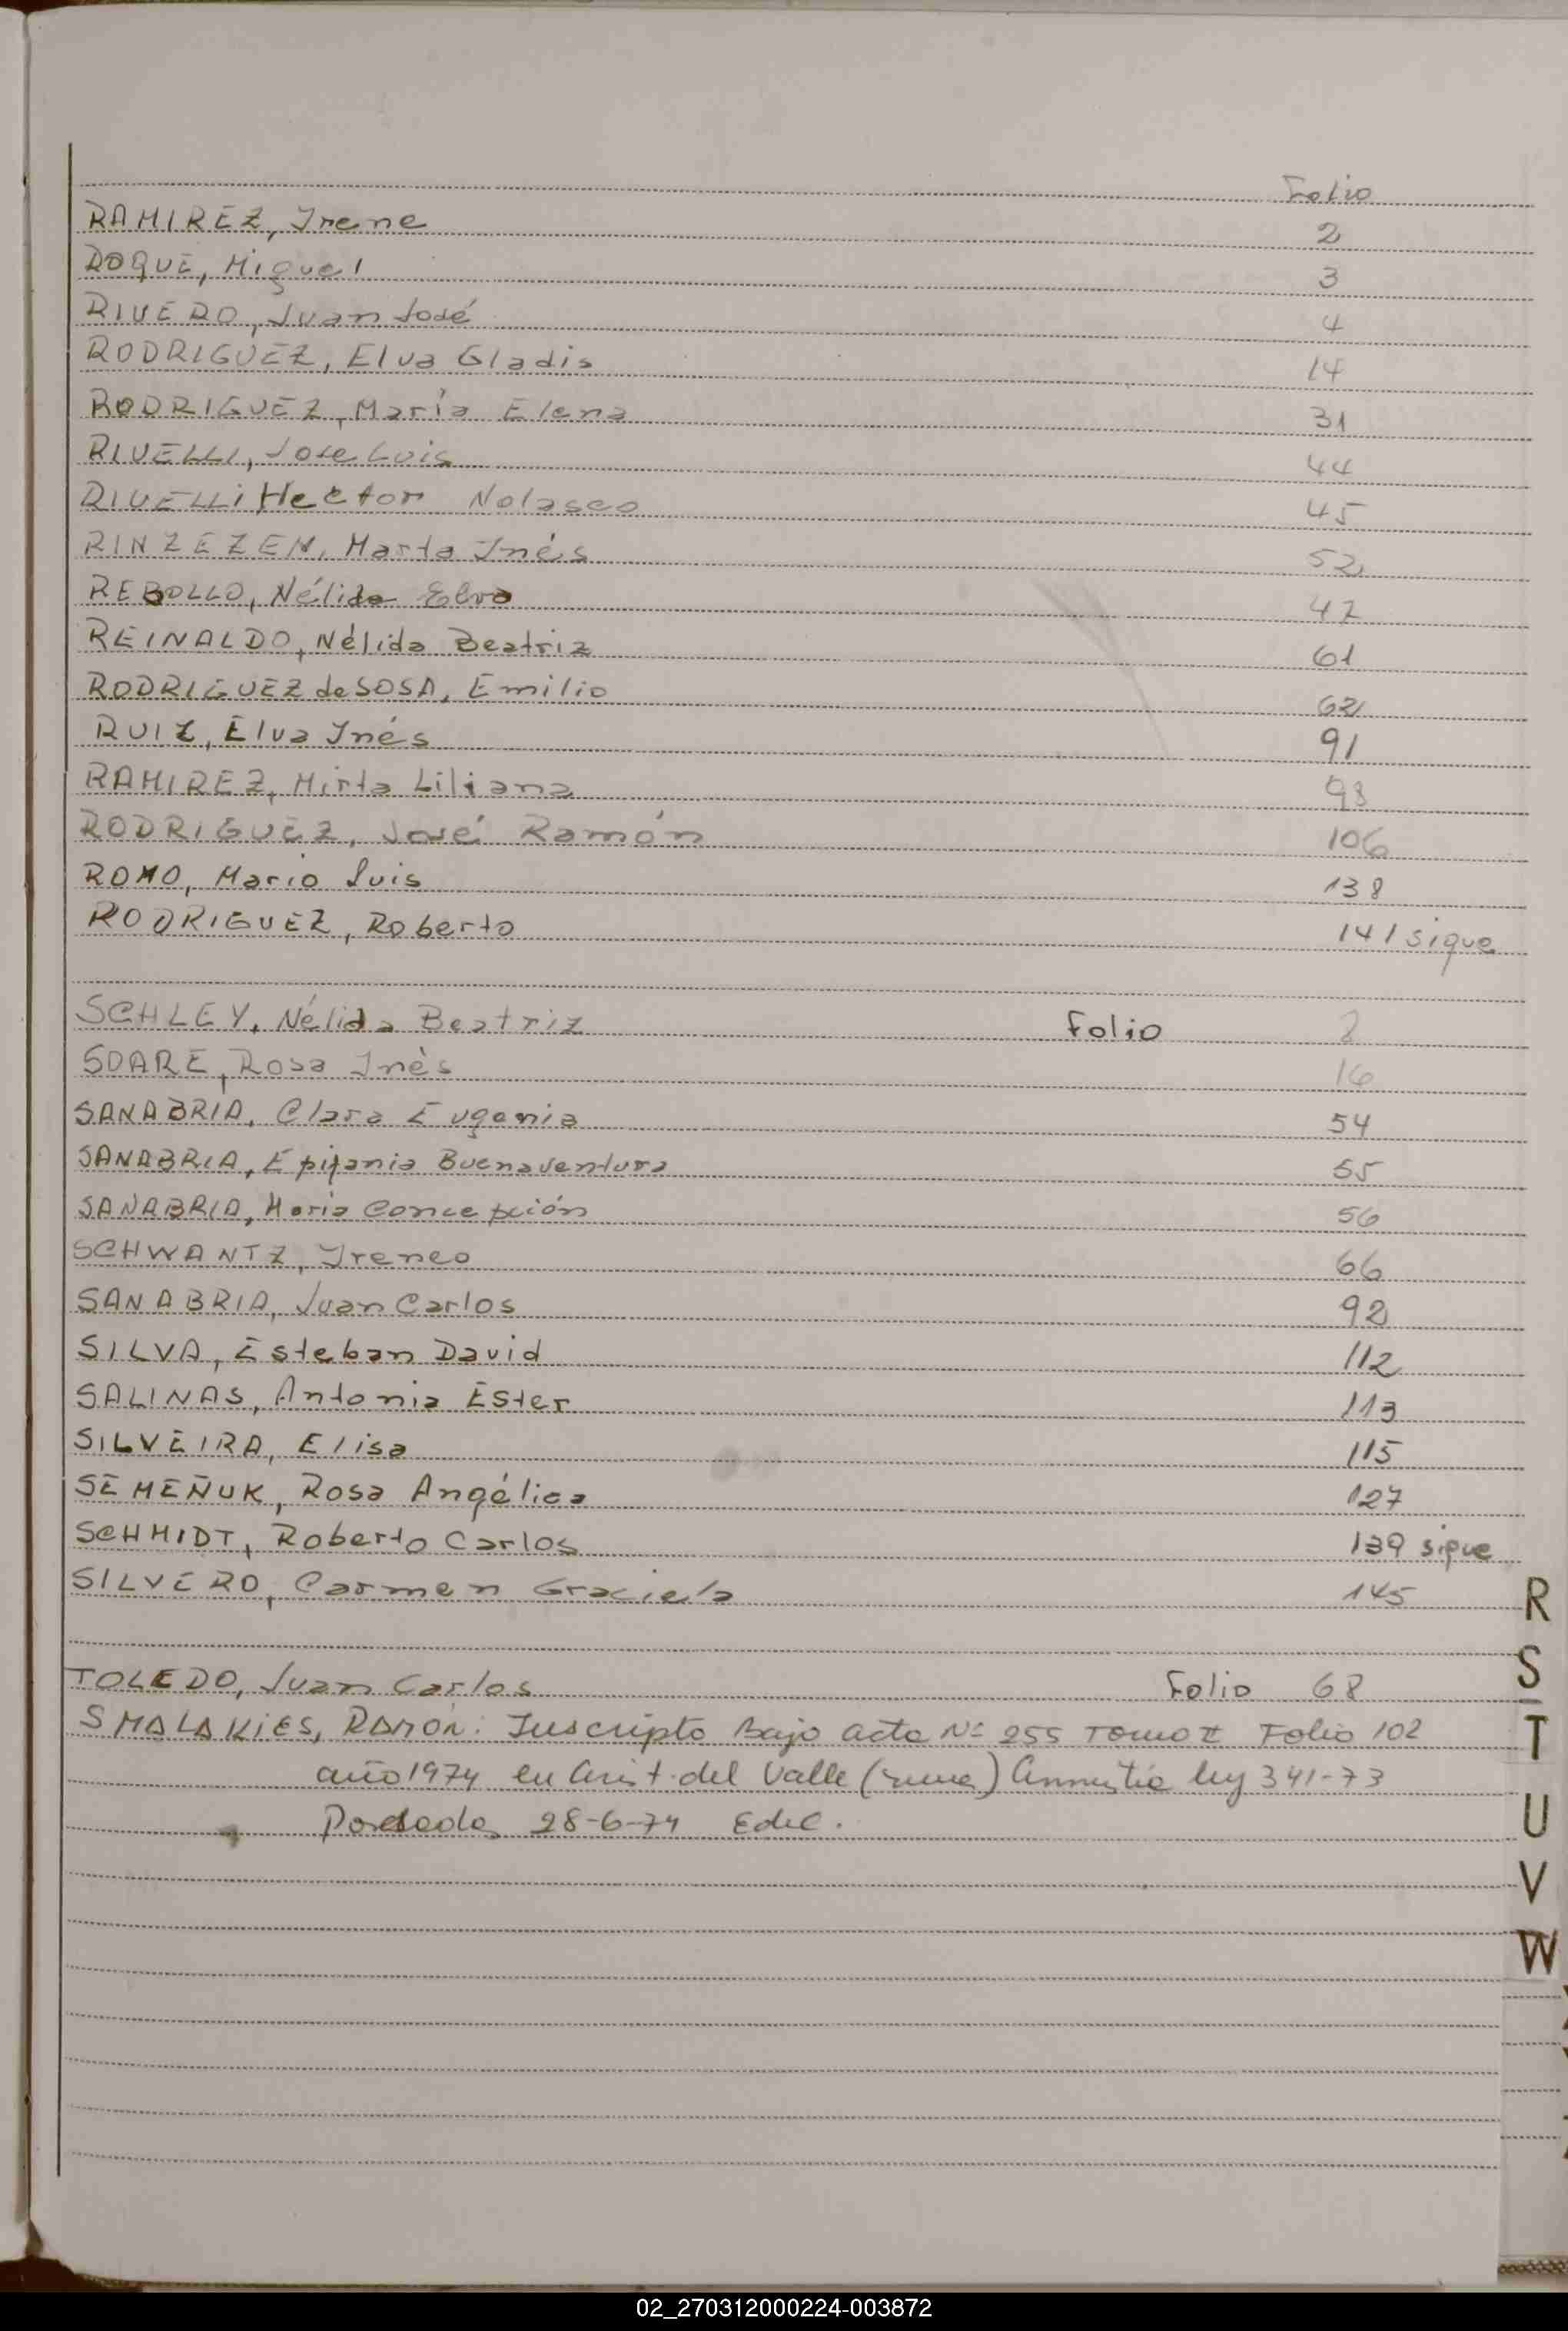 Folio
RAMIREZ, Irene 2
ROQUE, Miguel 3
RIVERO, Juan José 4
RODRIGUEZ, Elva Gladis 14
RODRIGUEZ, María Elena 31
RIVELLI, Jose Luis 44
RIVELLI Hector Nolasco 45
RINZEZEN, Marta Inés 52
REBOLLO, Nélida Elva 47
REINALDO, Nélida Beatriz 61
RODRIGUEZ de SOSA, Emilio 62
RUIZ, Elva Inés 91
RAMIREZ, Mirta Liliana 98
RODRIGUEZ, José Ramón 106
ROMO, Mario Luis 138
RODRIGUEZ, Roberto 141 sigue
SCHLEY, Nélida Beatriz Folio
SOARE, Rosa Inès 16
SANABRIA, Clara Eugenia 54
SANABRIA, Epifania Buenaventura 55
SANABRIA, Maria Concepción 56
SCHWANTZ, Ireneo 66
SANABRIA, Juan Carlos 92
SILVA, Esteban David 112
SALINAS, Antonia Ester 113
SILVEIRA, Elisa 115
SEMEÑUK, Rosa Angélica 127
SCHMIDT, Roberto Carlos 139 sigue
SILVERO, Carmen Graciela 145
TOLEDO, Juan Carlos Folio 68
SMALAKIES, RAMÓN: Inscripto Bajo acta Nº 255 Tomo II Folio 102
año 1974 en Arist. del Valle Amnistia ley 341-73
Posadas 28-6-74
R
S
T
U
V
W
02_270312000224-003872